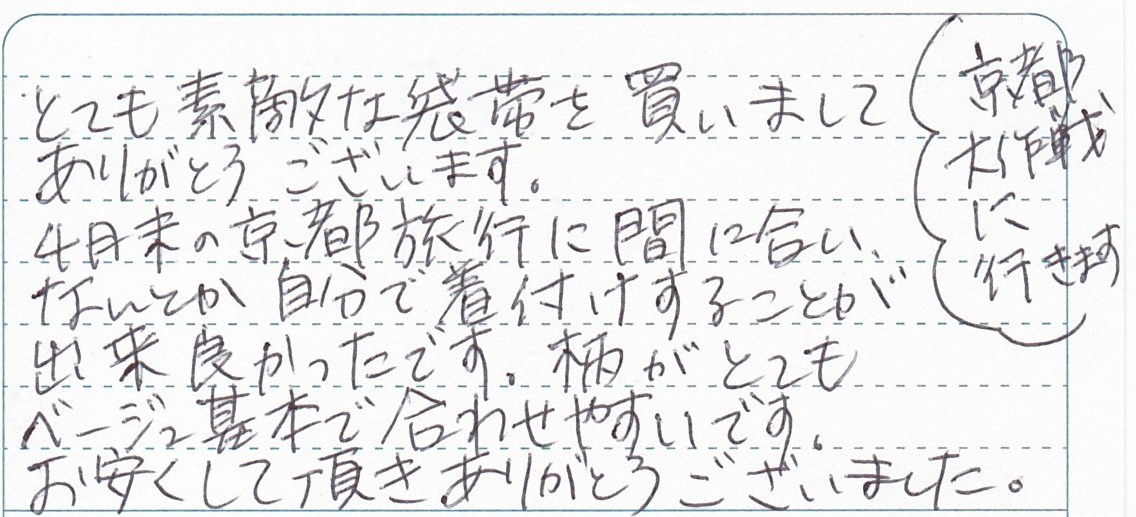 とても素敵な袋帯を買いまして
ありがとうございます。
4月末の京都旅行に間に合い、
なんとか自分で着付けすることが
出来良かったです。柄がとても
ベージュ基本で合わせやすいです。
お安くして頂きありがとうございました。
京都
大作戦
に
行きます